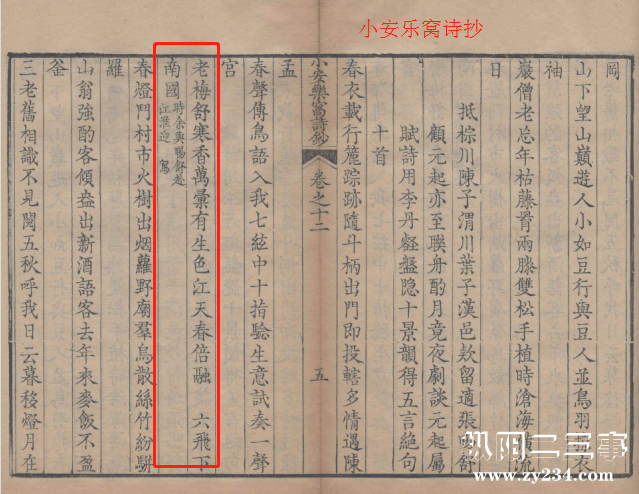 小安乐窝诗抄
岡
山下望山巔遊人小如豆行與豆人並鳥羽拂衣
袖
巖僧老忘年枯藤罥兩膝雙松手植時滄海流
日
抵棕川陳子渭川葉子漢邑欵留適張舒
顧元起亦至聯舟酌月竟夜劇談元起屬
賦詩用李丹壑盤隐十景韻得五言絶句
十首
春衣載行麓踪跡隨斗柄出門即投轄多情遇陳
小安樂窩詩鈔 卷之十二 五
孟
春聲傳鳥語入我七絃中十指驗生意試奏一聲
宮
老梅舒寒香萬彙有生色江天春倍融 六飛下
南國 時余與賜舒赴江淮迎 駕
春燈門村市火樹出烟蘿野廟羣烏散絲竹紛駢
羅
山翁強酌客傾盎出新酒語客去年來麥飯不盈
釜
三老舊相識不見閱五秋呼我日云暮移燈月在
枞阳二三事
www.zy234.com